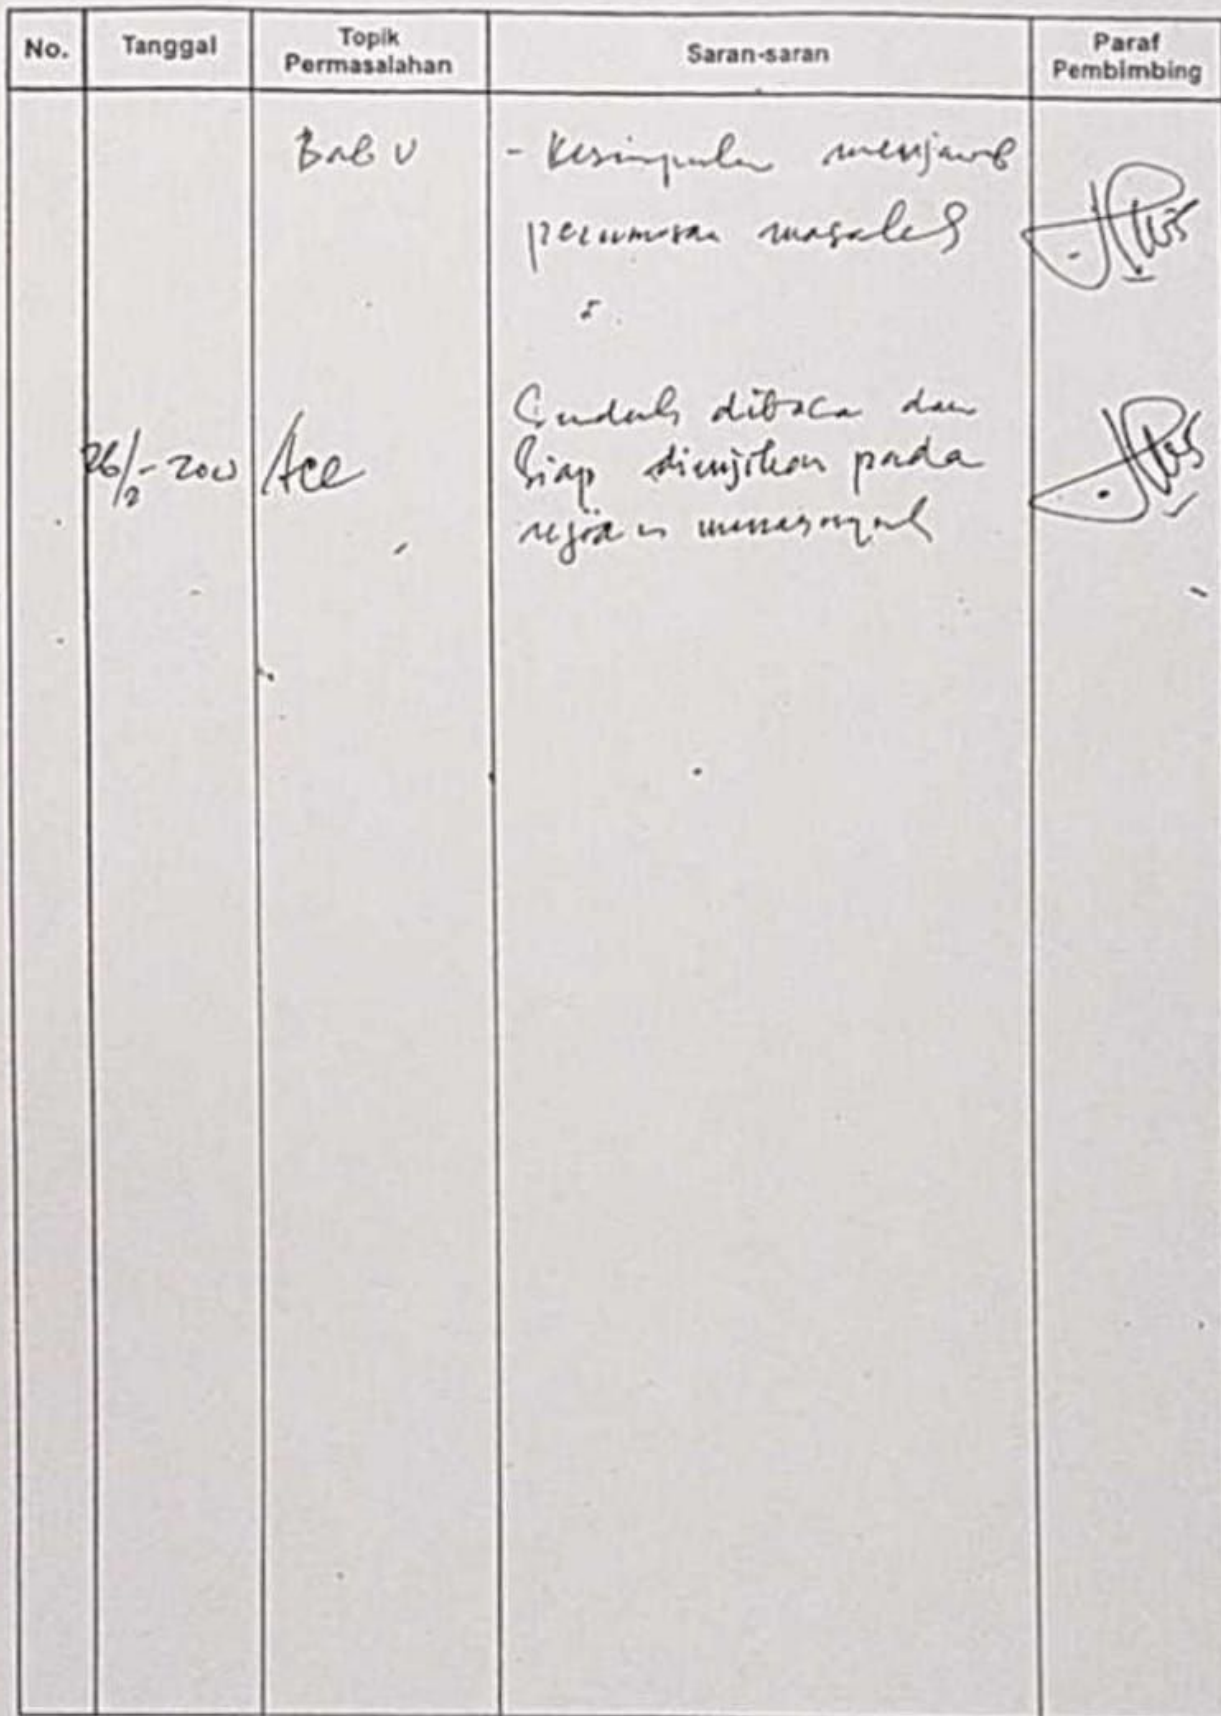 No. Tanggal Topik Permasalahan Saran-saran Paraf Pembimbing
Bab V - Kesimpulan menjawab
perumusan masalah
26/2- Acc Sudah dibaca dan
siap diujikan pada